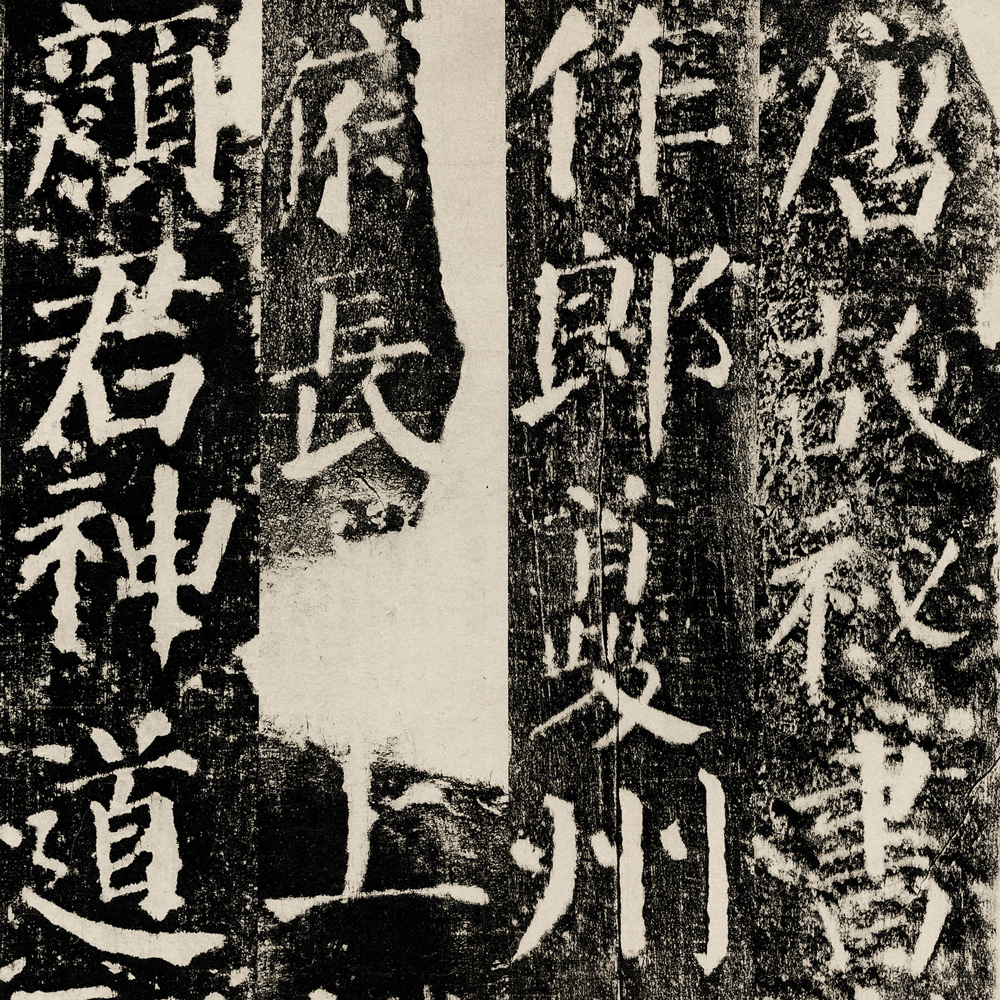 唐故秘書
作郎夔州
府長上
顏君神道